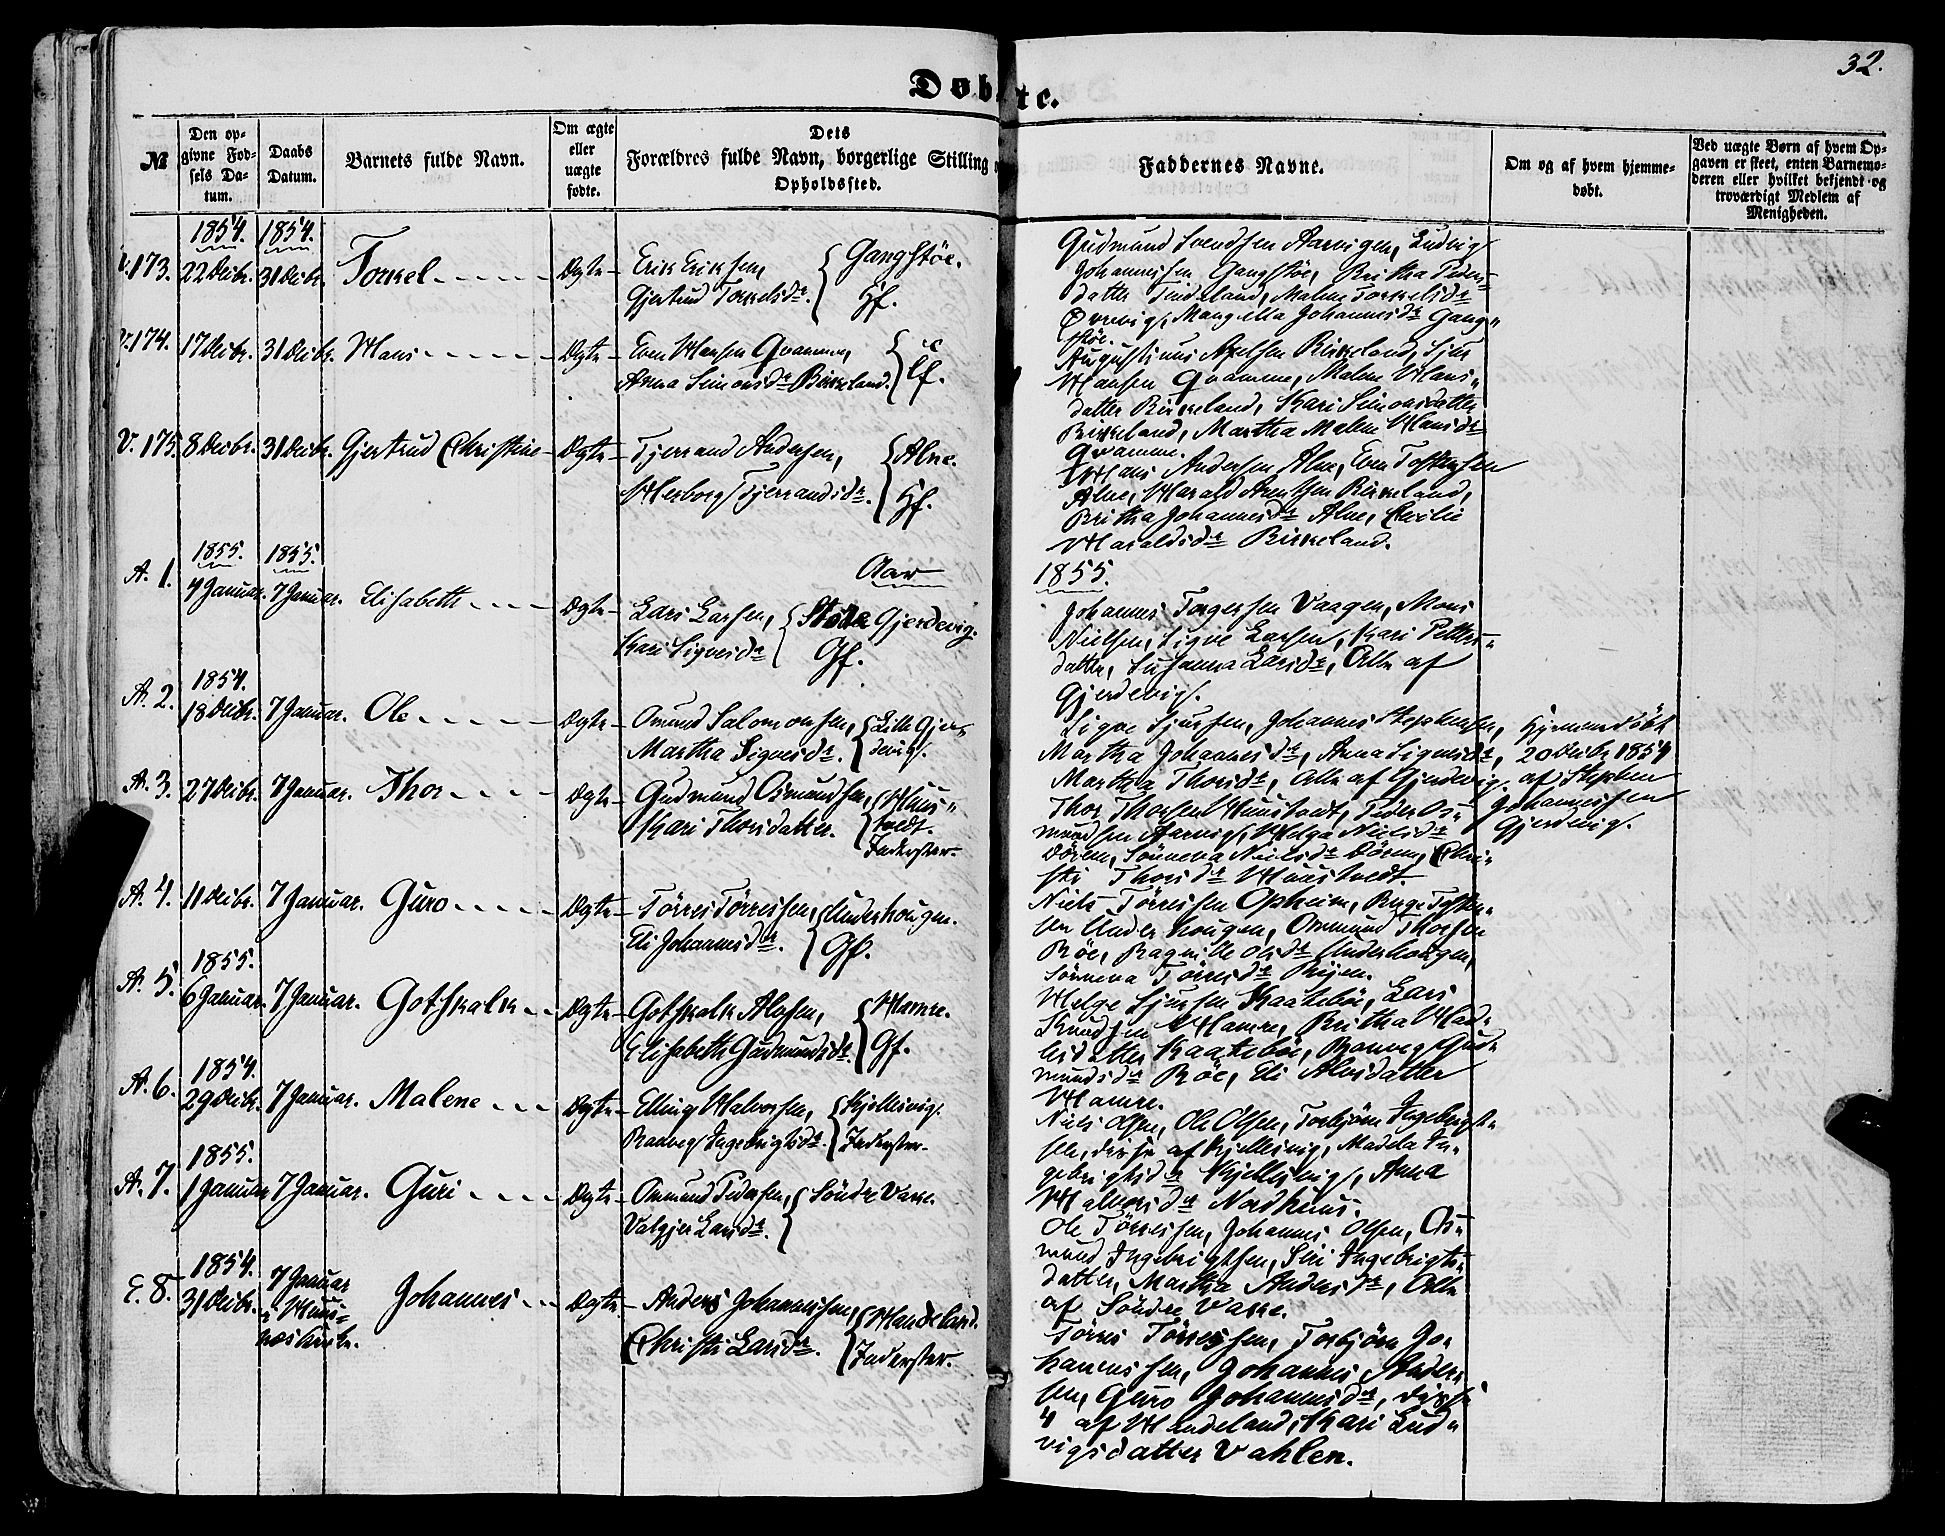 32.
Døbte.
№
Den opgivne Fødsels Datum.
Daabs Datum.
Barnets fulde Navn.
Om ægte eller uægte fødte.
Dets Forældres fulde Navn, borgerlige Stilling
Opholdssted.
Faddernes Navne.
Om og af hvem hjemmedøbt.
Ved uægte Børn af hvem Opgaven er skeet, enten Barnemoderen eller hvilket bekjendt og troværdigt Medlem af Menigheden.
1854. 1854.
173. 22 Decbr. 31 Decbr. Torkel Ægte Erik Eriksen, Gangstöe.
Gjertrud Torkelsdr. Gf.
Gudmund Svendsen Aarvigen, Ludvig
Johannessen Gangstöe, Britha Peders=
datter Tindeland, Malene Torkelsdr
Övrevig, Mangella Johannesdr Gang=
stöe.
174. 17 Decbr. 31 Decbr. Hans Ægte Even Hansen Qvamme,
Anna Simonsdr Birkeland.
Augustinus Axelsen Birkeland, Sjur
Hansen Qvamme, Malene Hans=
datter Birkeland, Kari Simonsdatter
Birkeland, Martha Malene Hansdr
Qvamme.
V. 175. 8 Decbr. 31 Decbr. Gjertrud Christine Ægte Tjerrand Andersen, Alne.
Herborg Tjerrandsdr. Gf.
Hans Andersen Alne, Even Tostensen
Alne, Harald Arentsen Birkeland,
Britha Johannesdr Alne, Cecilie
Haraldsdr Birkeland.
1855. 1855. Aar 1855.
A. 1. 4 Januar. 7 Januar. Elisabeth Ægte Lars Larsen, Store Gjerdevig.
Kari Sigvesdr Gf.
Johannes Torgersen Vaagen, Mons
Nielsen, Sigve Larsen, Kari Petters=
datter, Susanna Larsdr, Alle af
Gjerdevig.
1854.
A. 2. 18 Decbr. 7 Januar. Ole Ægte Omund Salomonsen, Lille Gjer=
Martha Sigvesdr. devig.
Sigve Sjursen, Johannes Stephensen,
Martha Johannesdr, Anna Sigvesdr,
Martha Thorsdr, Alle af Gjerdevig.
Hjemmedöbt
20 Decbr 1854
af Stephen
Johannessen
Gjerdevig.
A. 3. 27 Decbr. 7 Januar. Thor Ægte Gudmund Osmundsen, Huus=
Kari Thorsdatter. tvedt.
Inderster.
Thor Thorsen Huustvedt, Peder Os=
mundsen Aarvig, Helga Nielsdr
Döven, Sönneva Nielsdr Döven, Chri=
sti Thorsdr Huustvedt.
A. 4. 11 Decbr. 7 Januar. Guro Ægte Törres Törressen, Underhougen.
Eli Johannesdr. Gf.
Niels Törressen Opheim, Byge Tosten=
sen Underhougen, Ommund Thorsen
Röe, Ragnilde Olsdr Underhougen,
Sönneva Törresdr
1855.
A. 5. 6 Januar. 7 Januar. Gotskalk Ægte Gotskalk Alofsen, Hamre.
Elisabeth Gudmundsdr Gf.
Helge Sjursen Kaateböe, Lars
Knudsen Hamre, Britha Had=
lesdatter Kaateböe, Ranveg Gud=
mundsdr Röe, Eli Alvsdatter
Hamre.
1854.
A. 6. 29 Decbr. 7 Januar. Malene Ægte Elling Halvorsen, Kjellesvig.
Ranveg Ingebrigtsdr. Inderster.
Niels Olsen, Ole Olsen, Torbjörn Ingebrigt=
sen, disse af Kjellesvig, Madela In=
gebrigtsdr Kjellesvig, Anna
Halvorsdr Nordhuus.
1855.
A. 7. 1 Januar 7 Januar. Guri Ægte Ommund Pedersen, Söndre Varre.
Valgjer Larsdr.
Ole Törressen, Johannes Olsen, Os=
mund Ingebrigtsen, Siri Ingebrigts=
datter, Martha Andersdr, Alle
af Söndre Varre.
1854.
E. 8. 31 Decbr. 7 Januar i Huus=
næs Kirke.
Johannes Ægte Anders Johannessen, Handeland.
Christi Larsdr. Inderster.
Törres Törressen, Torbjörn Jo=
hannessen, Johannes Anders=
sen, Guro Johannesdr, disse
4 af Handeland, Kari Lud=
vigsdatter Vahlen.